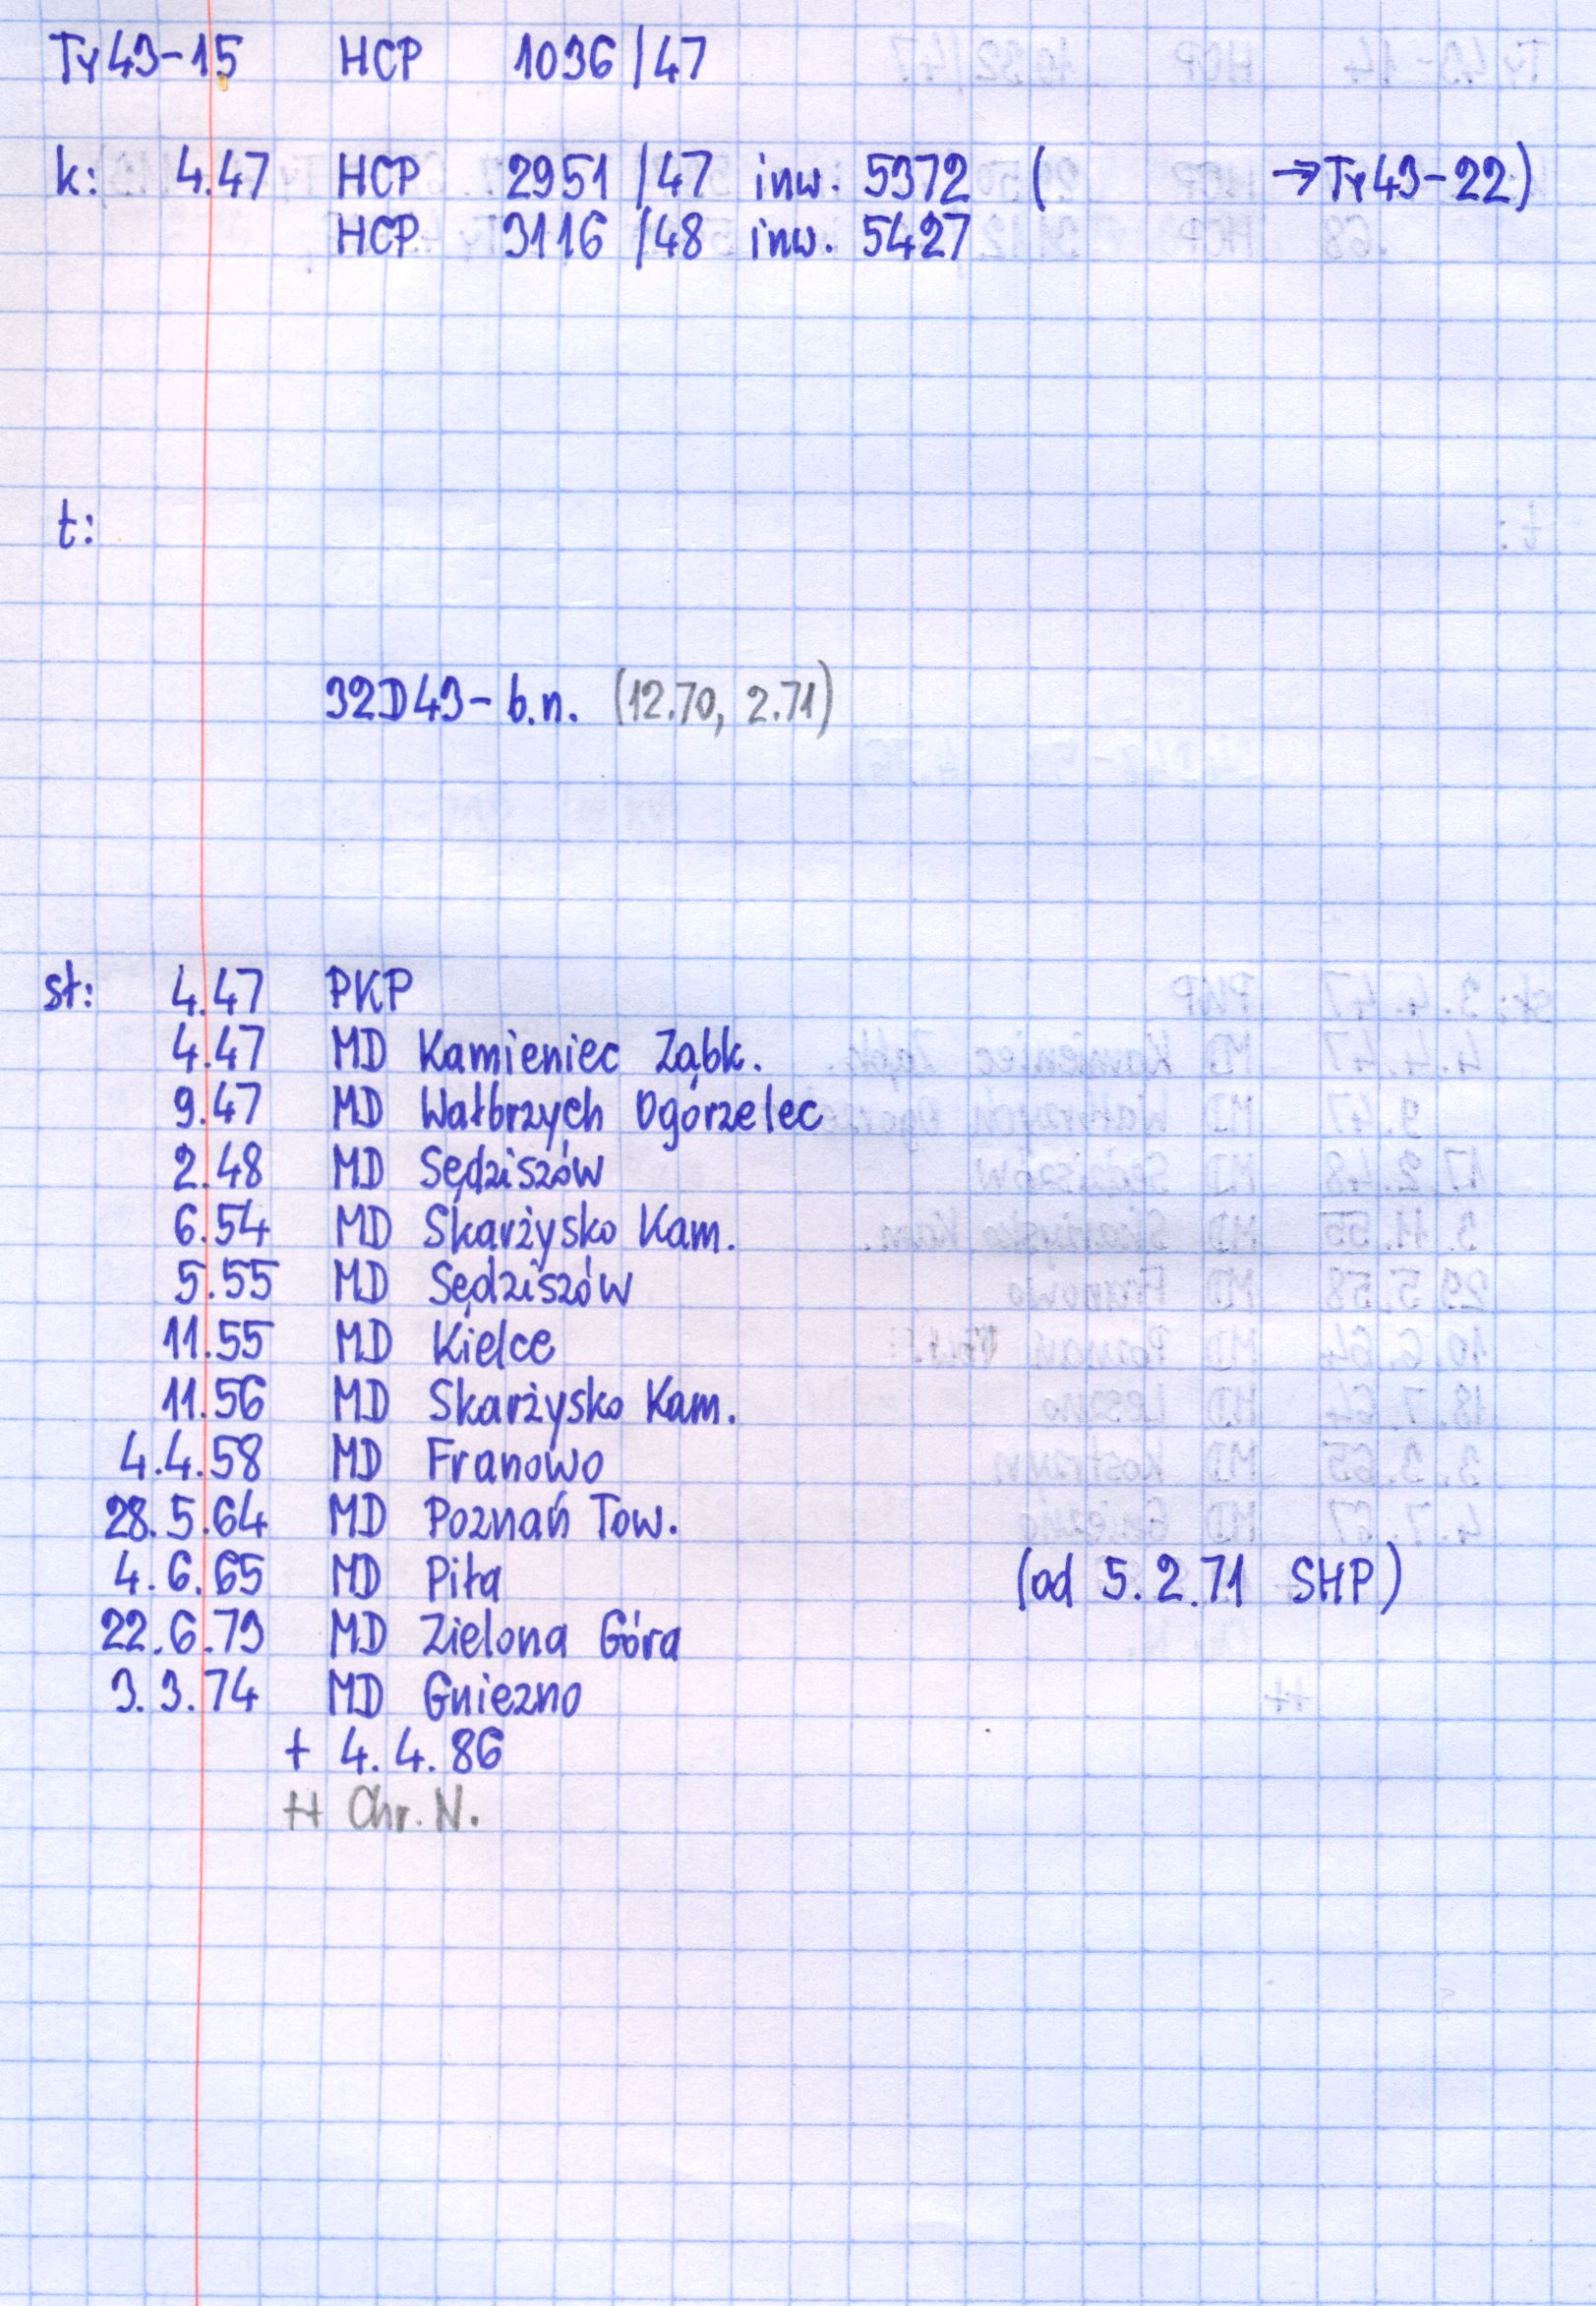 Ty43-15 HCP 1036/47
k: 4.47 HCP 2951/47 inw. 5372 ( →Ty43-22)
HCP 3116/48 inw. 5427
t:
32D43-b.n. (12.70, 2.71)
sł: 4.47 PKP
4.47 MD Kamieniec Ząbk.
9.47 MD Wałbrzych Ogorzelec
2.48 MD Sędziszów
6.54 MD Skarżysko Kam.
5.55 MD Sędziszów
11.55 MD Kielce
11.56 MD Skarżysko Kam.
4.4.58 MD Franowo
28.5.64 MD Poznań Tow.
4.6.65 MD Piła (od 5.2.71 SHP)
22.6.73 MD Zielona Góra
3.3.74 MD Gniezno
+ 4.4.86
++ Chr. N.